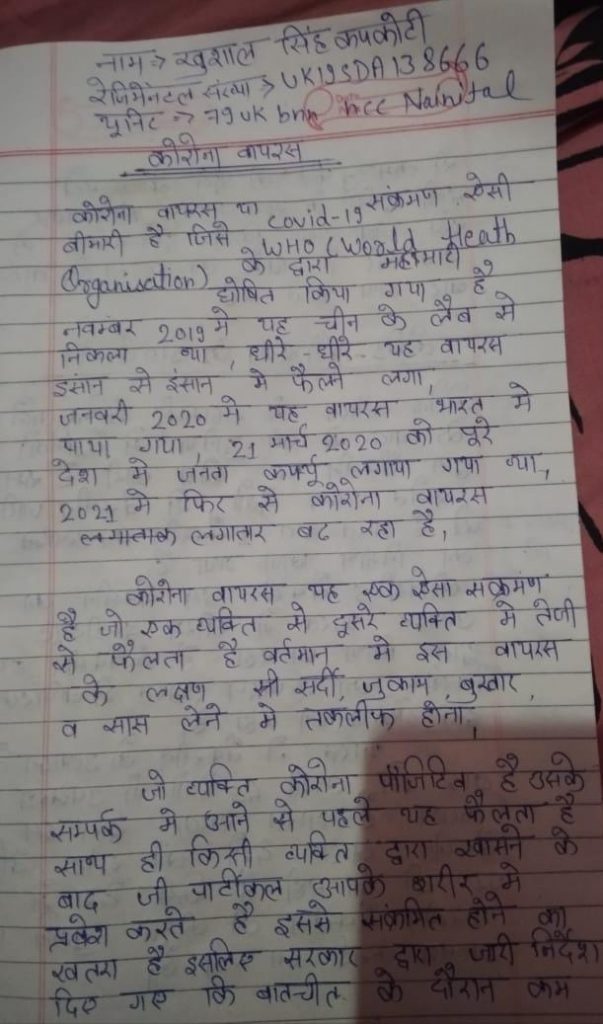 नाम → खुशाल सिंह कपकोटी
रेजिमेन्टल संख्या → UK19SDA138666
यूनिट → 79 UK bnn ncc Nainital
कोरोना वायरस
कोरोना वायरस या covid-19 संक्रमण ऐसी
बीमारी है जिसे WHO (World Heath
Organisation) के द्वारा महामारी
घोषित किया गया है
नवम्बर 2019 मे यह चीन के लैब से
निकला था, धीरे-धीरे यह वायरस
इंसान से इंसान मे फैलने लगा,
जनवरी 2020 मे यह वायरस भारत मे
पाया गया, 21 मार्च 2020 को पूरे
देश मे जनता कर्फ्यू लगाया गया था,
2021 मे फिर से कोरोना वायरस
लगातार बढ रहा है,
कोरोना वायरस यह एक ऐसा सक्रमण
है जो एक व्यक्ति से दूसरे व्यक्ति मे तेजी
से फैलता है वर्तमान मे इस वायरस
के लक्षण सर्दी, जुकाम, बुखार,
व सास लेने मे तकलीफ होना,
जो व्यक्ति कोरोना पॉजिटिव है उसके
सम्पर्क मे आने से पहले यह फैलता है
साथ ही किसी व्यक्ति द्वारा खासने के
बाद जो पार्टीकल आपके शरीर मे
प्रवेश करते है इससे संक्रमित होने का
खतरा है इसलिए सरकार द्वारा जारी निर्देश
दिए गए कि बातचीत के दौरान कम